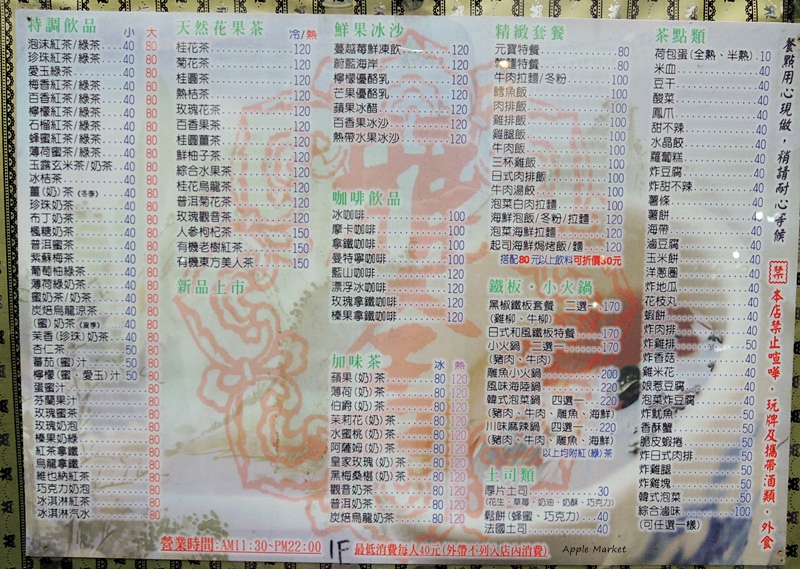 特調飲品 小 大
泡沫紅茶/綠茶 40 80
珍珠紅茶/綠茶 40 80
愛玉綠茶 40 80
梅香紅茶/綠茶 40 80
百香紅茶/綠茶 40 80
檸檬紅茶/綠茶 40 80
石榴紅茶/綠茶 40 80
蜂蜜紅茶/綠茶 40 80
薄荷蜜茶/綠茶 40 80
玉露玄米茶/奶茶 40 80
冰桔茶 40 80
薑(奶)茶(冬季) 40 80
珍珠奶茶 40 80
布丁奶茶 40 80
楓糖奶茶 40 80
普洱蜜茶 40 80
紫蘇梅茶 40 80
葡萄柚綠茶 40 80
薄荷綠奶茶 40 80
蜜奶茶/奶茶 40 80
炭焙烏龍涼茶 40 80
(蜜)奶茶(夏季) 40 80
茉香(珍珠)奶茶 40 80
杏仁茶 50 80
蕃茄(蜜)汁 50 80
檸檬(蜜、愛玉)汁 50 80
蛋蜜汁 80
芬蘭果汁 80
玫瑰蜜茶 80
玫瑰奶泡 80
榛果奶綠 80
紅茶拿鐵 80
烏龍拿鐵 80
維也納紅茶 80
巧克力奶泡 80
冰淇淋紅茶 80
冰淇淋汽水 80
天然花果茶 冷/熱
桂花茶 120
菊花茶 120
桂圓茶 120
熱桔茶 120
玫瑰花茶 120
百香果茶 120
桂圓薑茶 120
鮮柚子茶 120
綜合水果茶 120
桂花烏龍茶 120
普洱菊花茶 120
玫瑰觀音茶 120
人參枸杞茶 150
有機老樹紅茶 150
有機東方美人茶 150
新品上市
鮮果冰沙
蔓越莓鮮凍飲 120
蔚藍海岸 120
檸檬優酪乳 120
芒果優酪乳 120
蘋果冰醋 120
百香果冰沙 120
熱帶水果冰沙 120
咖啡飲品
冰咖啡 100
摩卡咖啡 100
拿鐵咖啡 100
曼特寧咖啡 100
藍山咖啡 120
漂浮冰咖啡 120
玫瑰拿鐵咖啡 120
榛果拿鐵咖啡 120
加味茶 冰 熱
蘋果(奶)茶 80 120
薄荷(奶)茶 80 120
伯爵(奶)茶 80 120
茉莉花(奶)茶 80 120
水蜜桃(奶)茶 80 120
阿薩姆(奶)茶 80 120
皇家玫瑰(奶)茶 80 120
黑梅桑椹(奶)茶 80 120
觀音奶茶 80 120
普洱奶茶 80 120
炭焙烏龍奶茶 80 120
精緻套餐
元寶特餐 80
雙醬特餐 80
牛肉拉麵/冬粉 100
鱈魚飯 100
肉排飯 100
雞排飯 100
雞腿飯 100
牛肉飯 100
三杯雞飯 100
日式肉排飯 100
牛肉湯餃 100
泡菜白肉拉麵 100
海鮮泡飯/冬粉/拉麵 120
泡菜海鮮拉麵 120
起司海鮮焗烤飯/麵 120
搭配80元以上飲料可折價30元
鐵板・小火鍋
黑椒鐵板套餐 二選一 170
(雞柳、牛柳)
日式和風鐵板特餐 170
小火鍋 二選一 170
(豬肉、牛肉)
雕魚小火鍋 200
風味海陸鍋 220
韓式泡菜鍋 四選一 220
(豬肉、牛肉、雕魚、海鮮)
川味麻辣鍋 四選一 220
(豬肉、牛肉、雕魚、海鮮)
以上均附紅(綠)茶
土司類
厚片土司 30
(花生、草莓、奶油、奶酥、巧克力)
鬆餅(蜂蜜、巧克力) 40
法國土司 40
茶點類
荷包蛋(全熟、半熟) 10
米血 20
豆干 20
酸菜 20
鳳爪 20
甜不辣 20
水晶餃 30
蘿蔔糕 30
炸豆腐 30
炸甜不辣 30
薯條 30
薯餅 30
海帶 30
滷豆腐 30
玉米餅 30
洋蔥圈 30
炸地瓜 30
花枝丸 30
蝦餅 30
炸肉排 30
炸雞排 50
炸香菇 30
雞米花 30
娘惹豆腐 30
泡菜炸豆腐 30
炸魷魚 50
香酥蟹 50
脆皮蝦捲 50
炸日式肉排 50
炸雞腿 50
炸雞塊 50
韓式泡菜 50
綜合滷味 100
(可任選一樣)
餐點用心現做，稍請耐心等候
禁 本店禁止喧嘩、玩牌及攜帶酒類、外食
營業時間:AM11:30~PM22:00 1F 最低消費每人40元(外帶不列入店內消費)
Apple Market